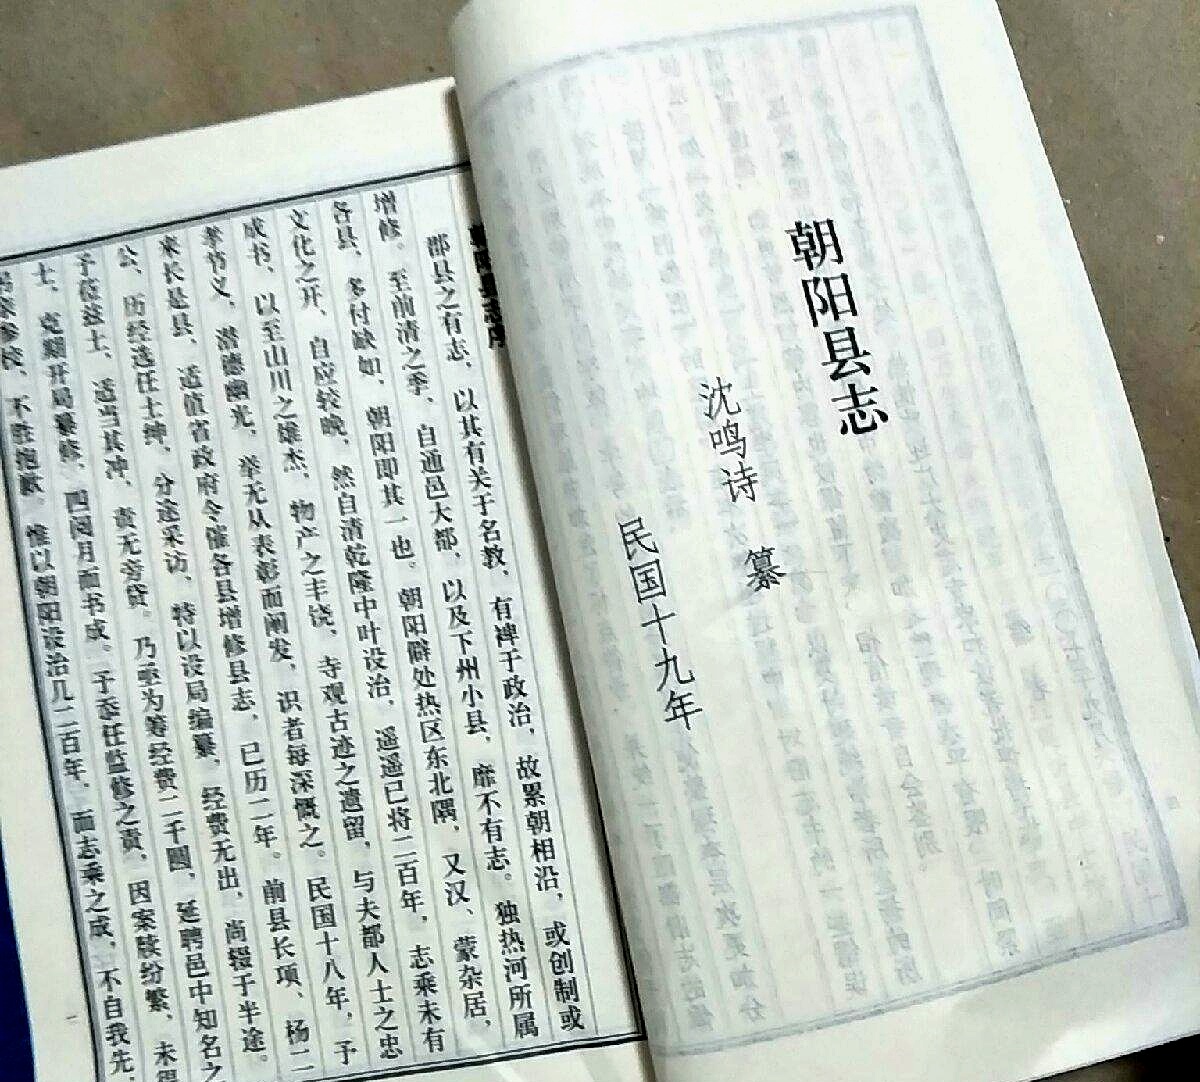 朝阳县志
沈鸣诗 纂
民国十九年
朝阳县志序
郡县之有志，以其有关于名教，有裨于政治，故累朝相沿，或创制或
增修。至前清之季，自通邑大都，以及下州小县，靡不有志。独热河所属
各县，多付缺如，朝阳即其一也。朝阳僻处热区东北隅，又汉、蒙杂居，
文化之开，自应较晚，然自清乾隆中叶设治，遥遥已将二百年，志乘未有
成书，以至山川之雄杰，物产之丰饶，寺观古迹之遗留，与夫都人士之忠
孝节义，潜德幽光，举无从表彰而阐发，识者每深慨之。民国十八年，予
来长是县，适值省政府令催各县增修县志，已历二年。前县长项、杨二
公，历经选任士绅，分途采访，特以设局编纂，经费无出，尚辍于半途。
予莅兹土，适当其冲，责无旁贷。乃亟为筹经费二千圆，延聘邑中知名之
士，克期开局纂修，四阅月而书成。予忝任监修之责，因案牍纷繁，未得
参校，不胜抱歉。惟以朝阳设治几二百年，而志乘之成，不自我先，
一